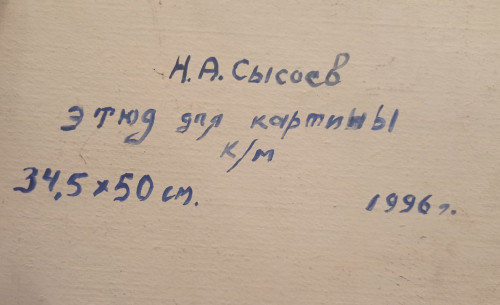 Н.А. Сысоев
этюд для картины
к/м
34,5 x 50 см.
1996 г.